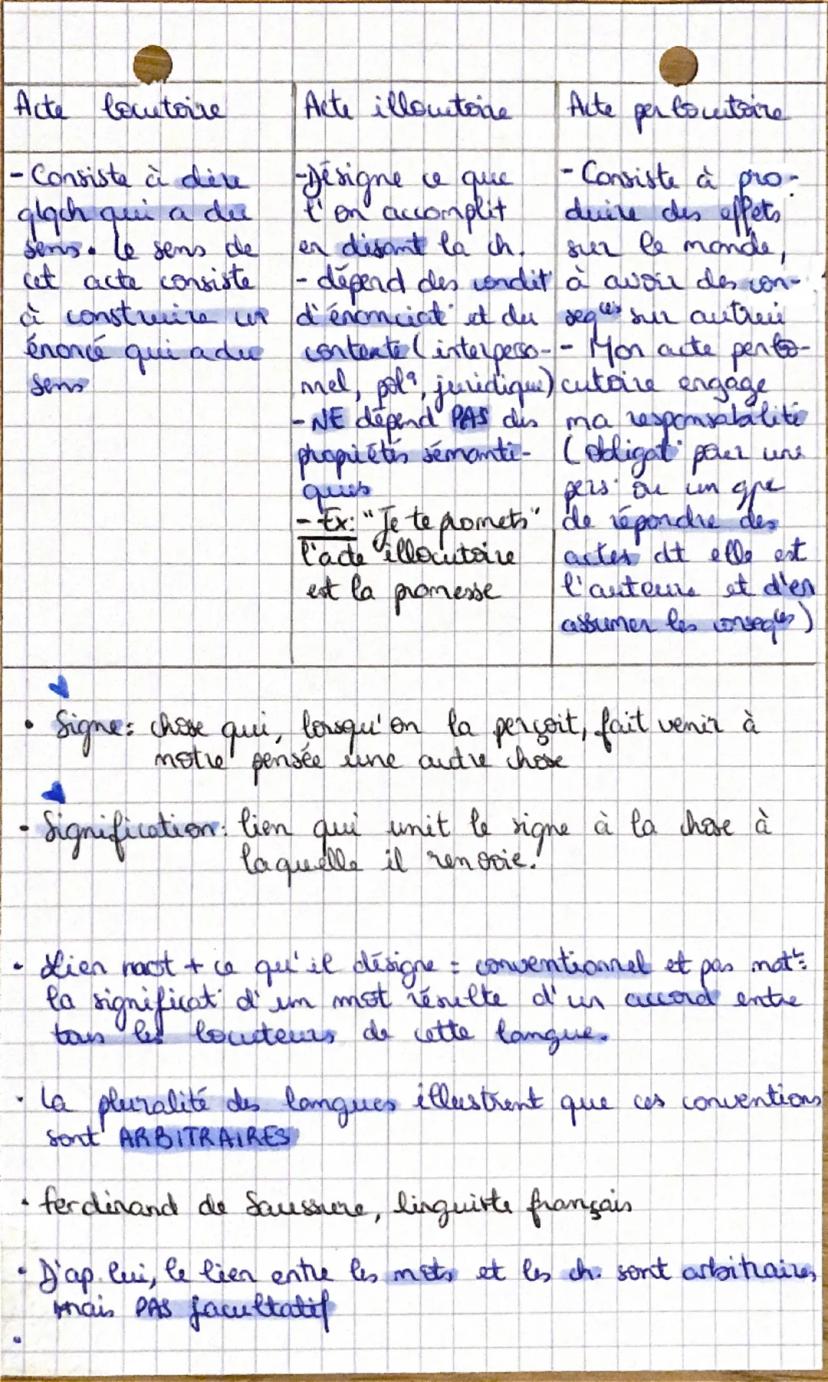 Acte locutoire
- Consiste à dire
qlqch qui a du
sens. Le sens de
cet acte consiste
à construire un
énoncé qui a du
sens
Acte illocutoire
- Désigne ce que
l'on accomplit
en disant la ch.
- dépend des condit°
d'énonciat° et du
contexte (interperso-
nnel, polq, juridique)
- NE dépend PAS des
propriétés sémanti-
ques
- Ex: "Je te promets"
l'acte illocutoire
est la promesse
Acte perlocutoire
- Consiste à pro-
duire des effets
sur le monde,
à avoir des con-
seqces sur autrui
- Mon acte perlo-
cutoire engage
ma responsabilité
(obligat° pour une
pers° ou un gpe
de répondre des
actes dt elle est
l'auteure et d'en
assumer les conseqces)
• Signe: chose qui, lorsqu'on la perçoit, fait venir à
notre pensée une autre chose
• Signification: lien qui unit le signe à la chose à
laquelle il renvoie.
• Lien mot + ce qu'il désigne = conventionnel et pas nat:
la significat° d'un mot résulte d'un accord entre
tous les locuteurs de cette langue.
• La pluralité des langues illustrent que ces conventions
sont ARBITRAIRES
• Ferdinand de Saussure, linguiste français
• D'ap. lui, le lien entre les mots et les ch. sont arbitraires,
mais PAS facultatif
•